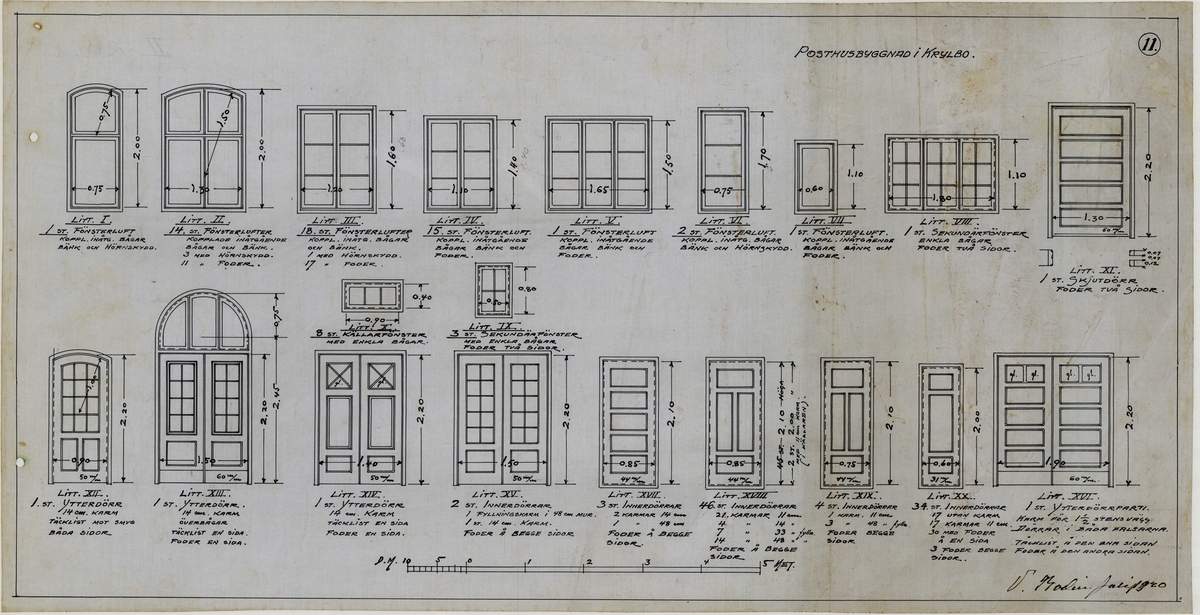 11.
POSTHUSBYGGNAD i KRYLBO.
0.75
2.00
0.75
LITT. I.
1 ST. FÖNSTERLUFT
KOPPL. INÅTG. BÅGAR
BÄNK OCH HÖRNSKYDD.
1.50
2.00
1.30
LITT. II.
14 ST. FÖNSTERLUFTER
KOPPLADE INÅTGÅENDE
BÅGAR OCH BÄNK
3 MED HÖRNSKYDD.
11 " FODER.
1.60
LITT. III.
18 ST. FÖNSTERLUFTER
KOPPL. INÅTG. BÅGAR
OCH BÄNK.
1 MED HÖRNSKYDD.
17 " FODER.
1.40
1.10
LITT. IV.
15 ST. FÖNSTERLUFT.
KOPPL. INÅTGÅENDE
BÅGAR BÄNK OCH
FODER.
1.50
1.65
LITT. V.
1 ST. FÖNSTERLUFT
KOPPL. INÅTGÅENDE
BÅGAR, BÄNK OCH
FODER.
1.70
0.75
LITT. VI.
2 ST. FÖNSTERLUFT.
KOPPL. INÅTG. BÅGAR
BÄNK OCH HÖRNSKYDD.
1.10
0.60
LITT. VII.
1 ST. FÖNSTERLUFT.
KOPPL. INÅTGÅENDE
BÅGAR BÄNK OCH
FODER.
1.10
1.80
LITT. VIII.
1 ST. SEKUNDÄRFÖNSTER
ENKLA BÅGAR
FODER TVÅ SIDOR.
2.20
1.30
60 m/m
0.07
0.07
0.12
LITT. XI.
1 ST. SKJUTDÖRR
FODER TVÅ SIDOR.
0.40
0.90
LITT. X.
8 ST. KÄLLARFÖNSTER
MED ENKLA BÅGAR.
0.80
0.50
LITT. IX.
3 ST. SEKUNDÄRFÖNSTER
MED ENKLA BÅGAR.
FODER TVÅ SIDOR.
2.20
0.90
50 m/m
LITT. XII.
1 ST. YTTERDÖRR
14 cm. KARM
TÄCKLIST MOT SMYG
BÅDA SIDOR.
0.75
2.45
2.20
1.50
60 m/m
LITT. XIII.
1 ST. YTTERDÖRR.
14 cm. KARM
ÖVERBÅGAR
TÄCKLIST EN SIDA.
FODER EN SIDA.
2.20
1.40
50 m/m
LITT. XIV.
1 ST. YTTERDÖRR
14 cm. KARM
TÄCKLIST EN SIDA
FODER EN SIDA.
2.20
1.50
50 m/m
LITT. XV.
2 ST. INNERDÖRRAR
1 FYLLNINGSKARM I 48 cm MUR.
1 ST. 14 cm. KARM.
FODER Å BEGGE SIDOR
2.10
0.85
44 m/m
LITT. XVII.
3 ST. INNERDÖRRAR
2 KARMAR 14 cm
1 " 48 cm
FODER Å BEGGE
SIDOR.
45 ST. 2.10 HÖGA
2 ST. 2.00 "
MED 11 cm KARM.
(KÄLLAREN).
0.85
44 m/m
LITT. XVIII.
46 ST. INNERDÖRRAR
21 KARMAR 11 cm.
4 " 14 "
7 " 33 " fylln.
14 " 48 " "
FODER Å BEGGE
SIDOR
2.10
0.75
44 m/m
LITT. XIX.
4 ST. INNERDÖRRAR
1 KARM. 11 cm.
3 " 48 " fylln.
FODER BEGGE
SIDOR
2.00
0.60
31 m/m
LITT. XX.
34 ST. INNERDÖRRAR
17 UTAN KARM
17 KARMAR 11 cm
30 MED FODER
Å EN SIDA
3 FODER BEGGE
SIDOR.
gl. gl. gl. gl.
2.20
1.90
60 m/m
LITT. XVI.
1 ST. YTTERDÖRRPARTI.
KARM FÖR 1½ STENS VÄGG
DÖRRAR I BÅDA FALSARNA.
TÄCKLIST Å DEN ENA SIDAN
FODER Å DEN ANDRA SIDAN.
D.M. 10 5 0 1 2 3 4 5 MET.
1920